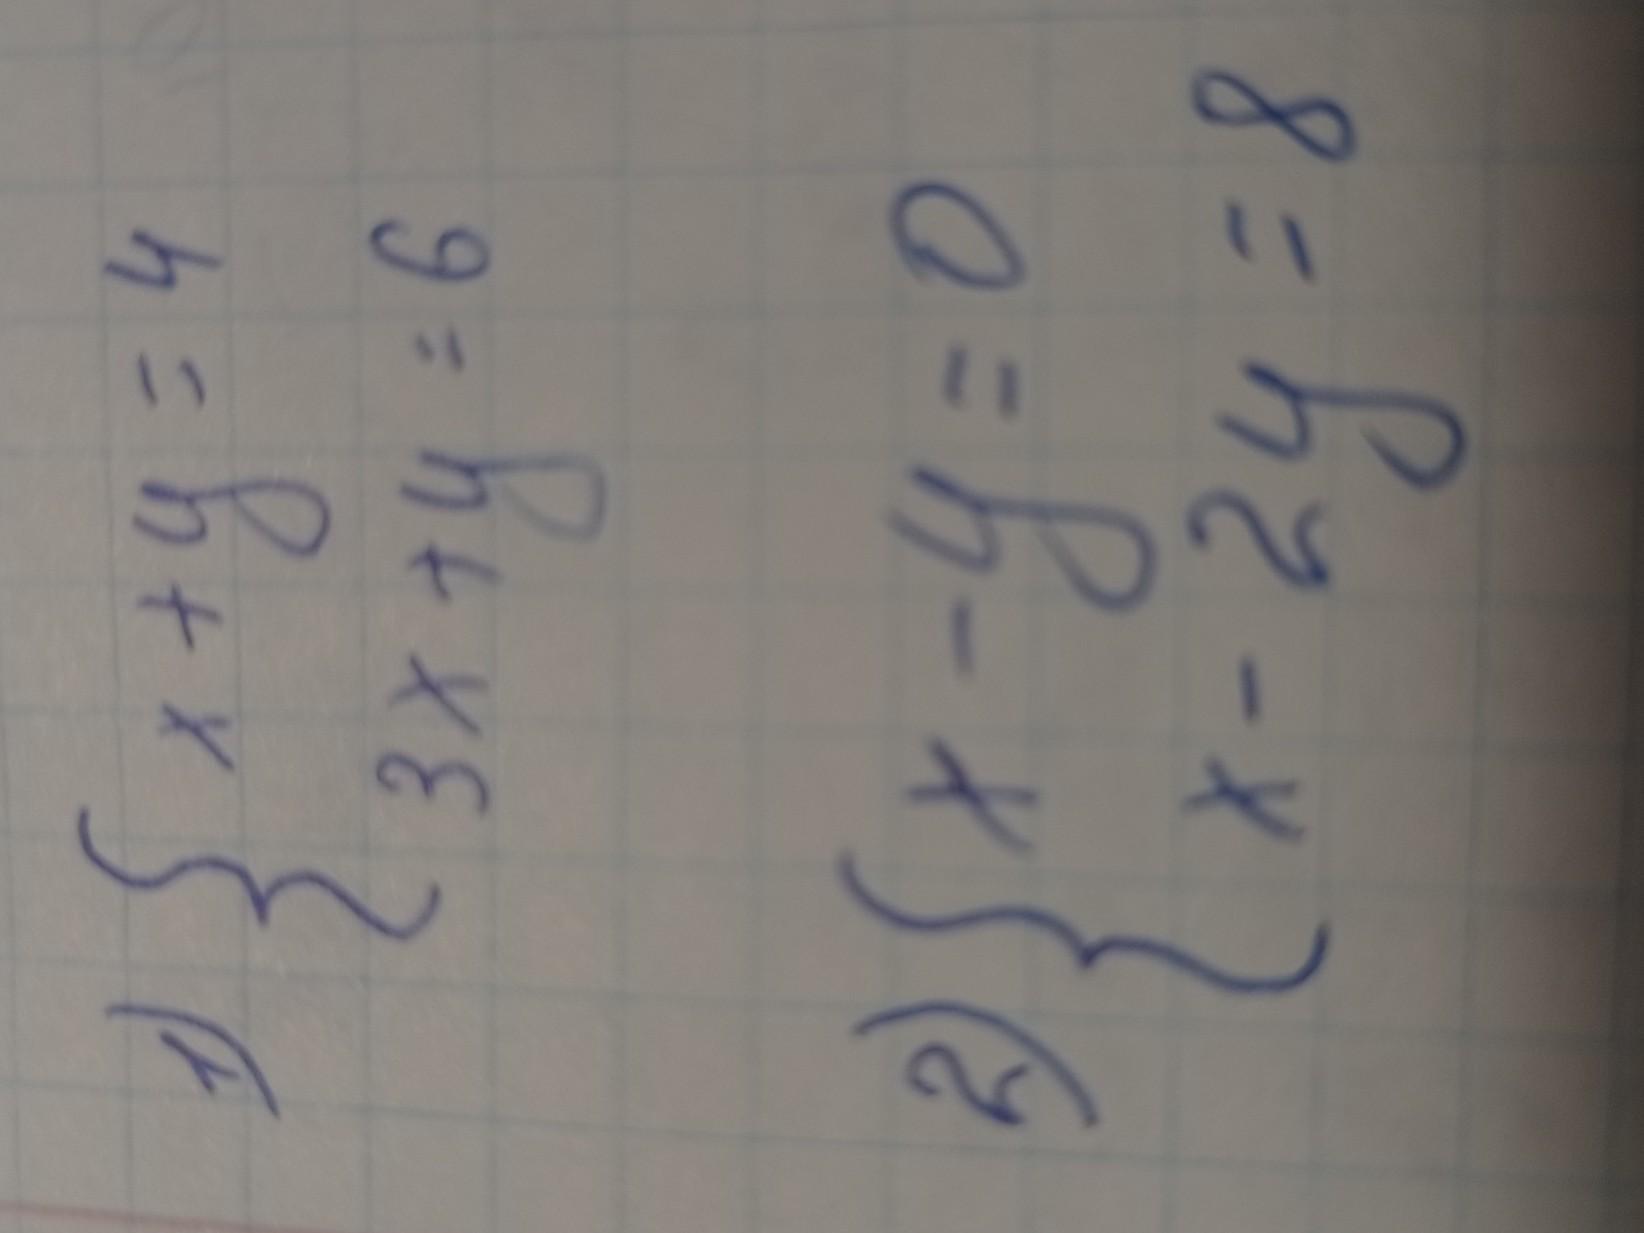 1) { x + y = 4
3x + y = 6
2) { x - y = 0
x - 2y = 8